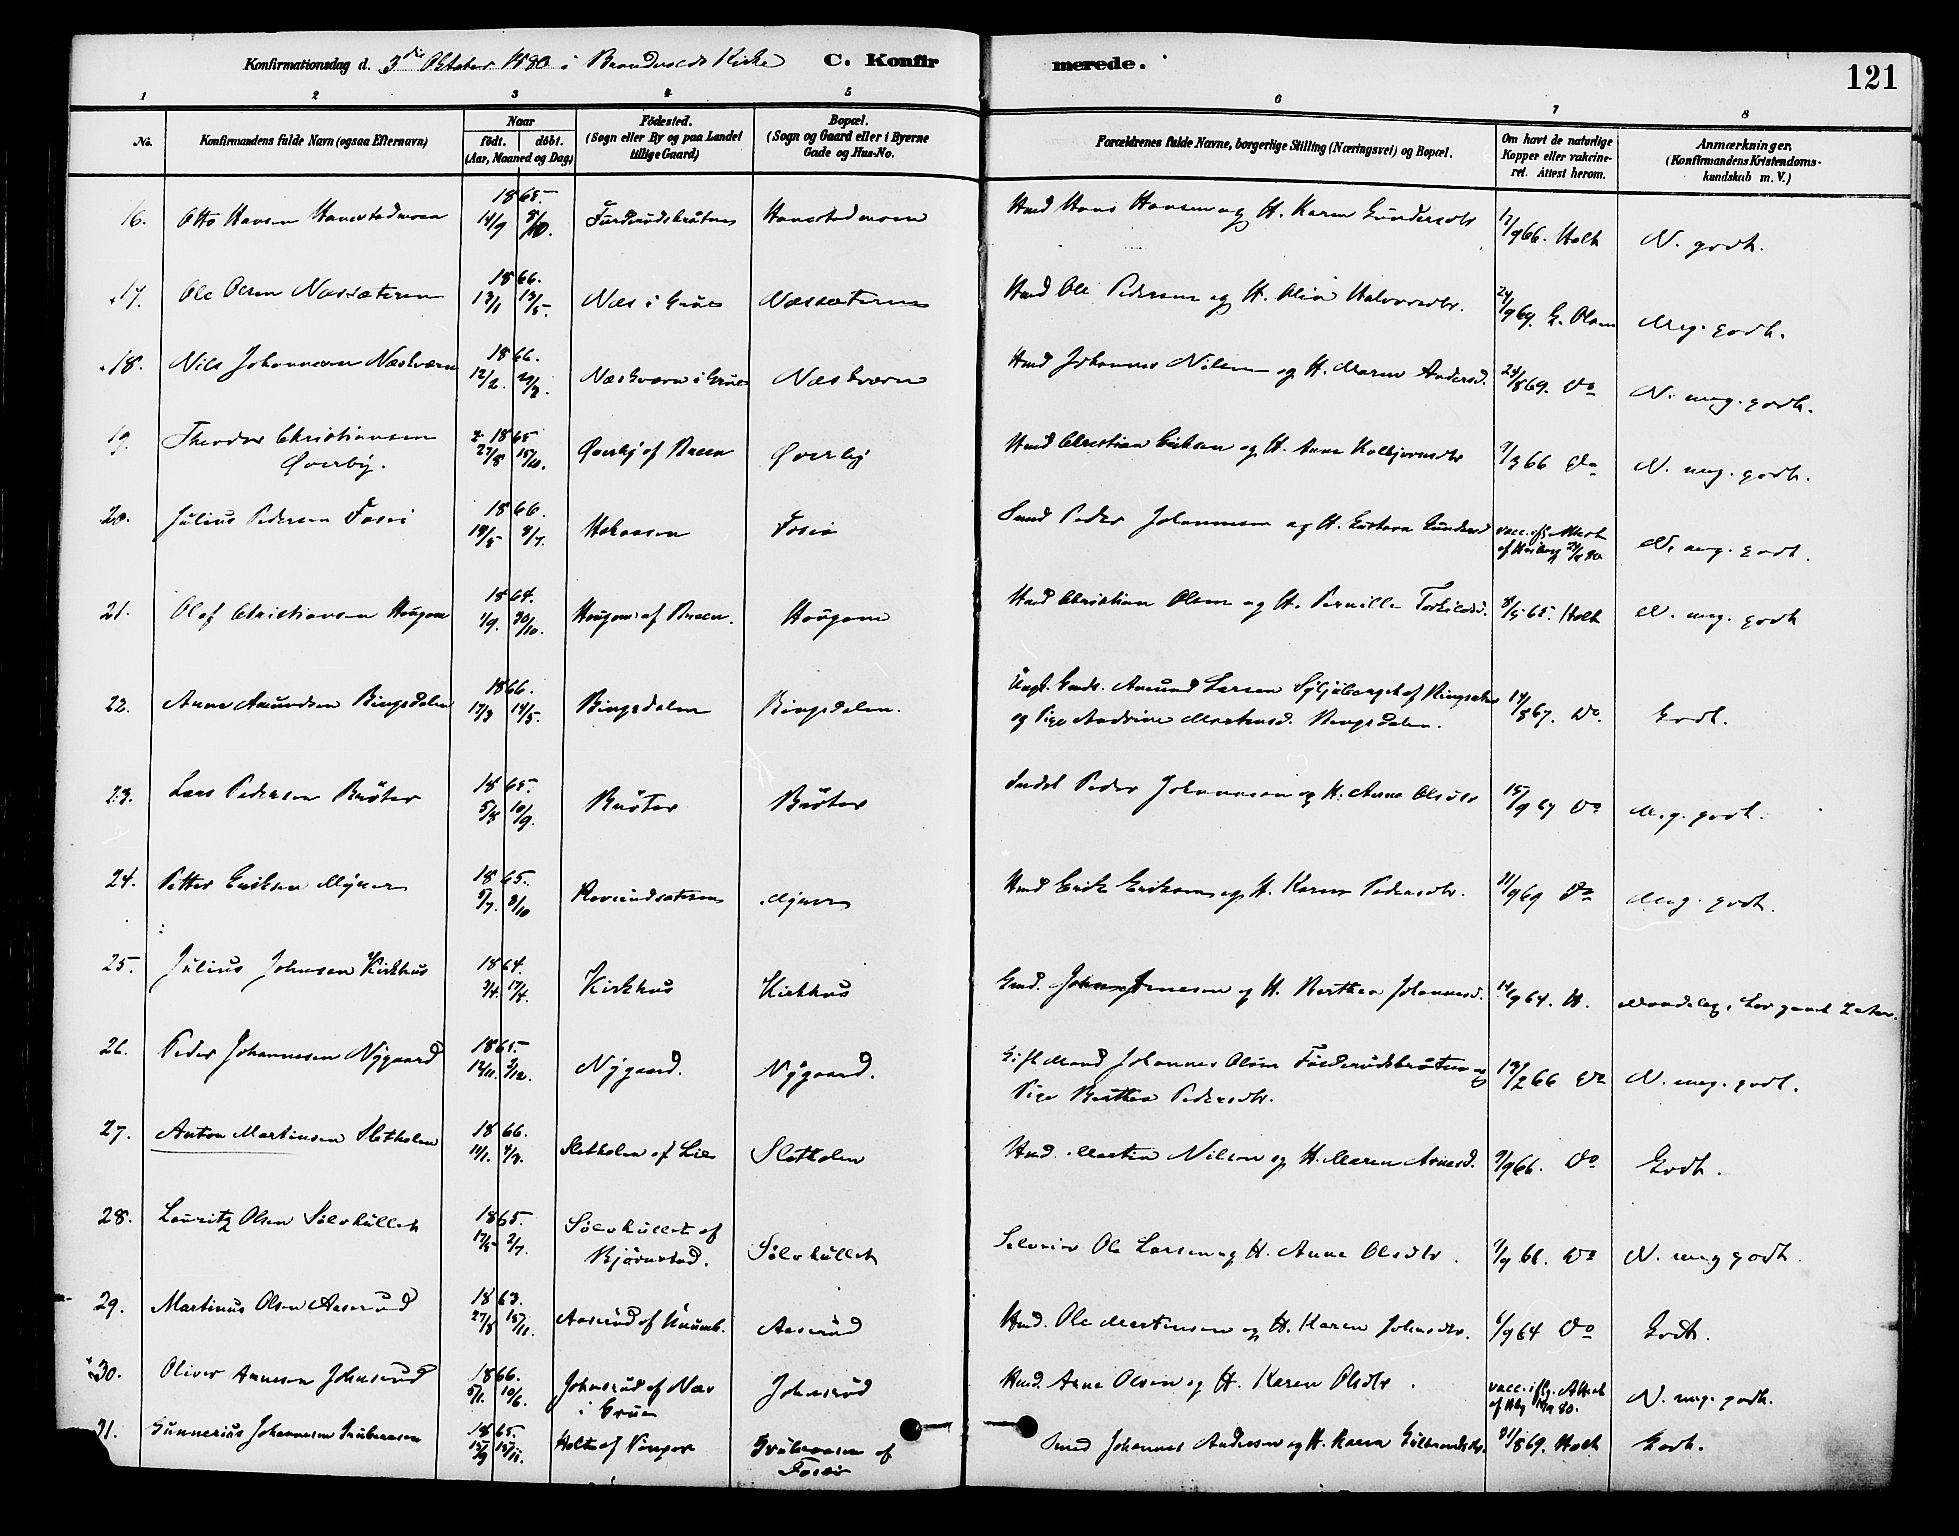 Konfirmationsdag d. 3die Oktober 1880 i Brandvold Kirke C. Konfir merede. 121
1 2 3 4 5 6 7 8
No. Konfirmandens fulde Navn (ogsaa Efternavn) Naar født. døbt. (Aar, Maaned og Dag) Fødested. (Sogn eller By og paa Landet tillige Gaard) Bopæl. (Sogn og Gaard eller i Byerne Gade og Hus-No. Forældrenes fulde Navne, borgerlige Stilling (Næringsvei) og Bopæl. Om havt de naturlige Kopper eller vakcineret. Attest herom. Anmærkninger. (Konfirmandens Kristendomskundskab m. V.)
16. Otto Hansen 1865. 14/9 8/10. Hmd Hans Hansen og H. Karen Gundersdtr 17/9 66. Holt N. godt.
17. Ole Olsen Næssæteren 1866. 13/1 13/5. Næs i Grue Næssæteren Hmd Ole Pedersen og H. Olia Halvorsdtr. 24/9 69. G. Olsen Meg. godt.
18. Nils Johannesen Næskværn 1866. 12/2. Næskværn i Grue Næskværn Hmd Johannes Nilsen og H. Maren Andersd. 24/8 69. Do N. meg. godt.
19. Theodor Christiansen Øverby. 1865 27/8 15/10. Øverby af Øverby Hmd Christian Eriksen og H. Anne Kolbjørnsdtr 9/3 66 Do N. meg. godt.
20. Julius Pedersen Fosei 1866. 18/5 8/7. Hokaasen Fosei Smed Peder Johannesen og H. Gustava Gundersd vacc. iflg. Attest N. meg. godt.
21. Olof Christiansen Haugom 1864. 1/9. 30/10. Haugom af Haugom Hmd Christian Olsen og H. Pernille Torkildsd. 8/5 65. Holt N. meg. godt
22. Anne Amundsen Ringsdalen 1866. 17/3 14/5. Ringsdalen Ringsdalen. Ungk. Gmds. Amund Larsen Syljuberget af Ringsaker og Pige Andrine Mortensd. Ringsdalen. 14/8 67. Do. Godt.
23. Lars Pedersen Brøter 1865. 5/8 10/9. Brøter Brøter Indst Peder Johannesen og H. Anne Olsdtr 15/9 67 Do Meg. godt.
24. Petter Eriksen Myren 1865. 5/7. 8/10 Rovsundsæteren Myren Hmd Erik Eriksen og H. Karen Pedersdtr. 21/9 69 Do Meg. godt.
25. Julius Johnsen Kirkhus 1864. 3/4. 17/4. Kirkhus Kirkhus Gmd. John Arnesen og H. Berthea Johannesd. 14/9 64. H.
26. Peder Johannesen Nygaard 1865. 12/11. 3/12. Nygaard. Nygaard. Gift Mand Johannes Olsen Furderudsbraaten og Pige Berthea Pedersdtr. 13/2 66 Do N. meg. godt.
27. Anton Martinsen Sletholen 1866. 14/1. 4/3. Sletholen af Lie Sletholen Hmd. Martin Nilsen og H. Maren Arnesd. 9/9 66. Do Godt.
28. Lauritz Olsen Sølvhullet 1865. 17/5 2/7. Sølvhullet af Bjørnstad. Sølvhullet Selveier Ole Larsen og H. Anne Olsdtr. 7/9 66. Do N. meg godt.
29. Martinus Olsen Aaserud 1863. 27/8 15/11. Aaserud af Aaserud Hmd. Ole Martinsen og H. Karen Johnsdtr. 6/9 64 Do Godt.
30. Oliver Arnesen Johnsrud 1866. 5/1. 10/6. Johnsrud af Næs i Grue Johnsrud Hmd. Arne Olsen og H. Karen Olsdtr. vacc. iflg. Attest N. meg. godt.
31. Gunnerius Johannesen 1865. 15/11. Holt af Fosei Smed Johannes Andersen og H. Karen Gulbrandsdtr. 31/8 69. Holt Godt.